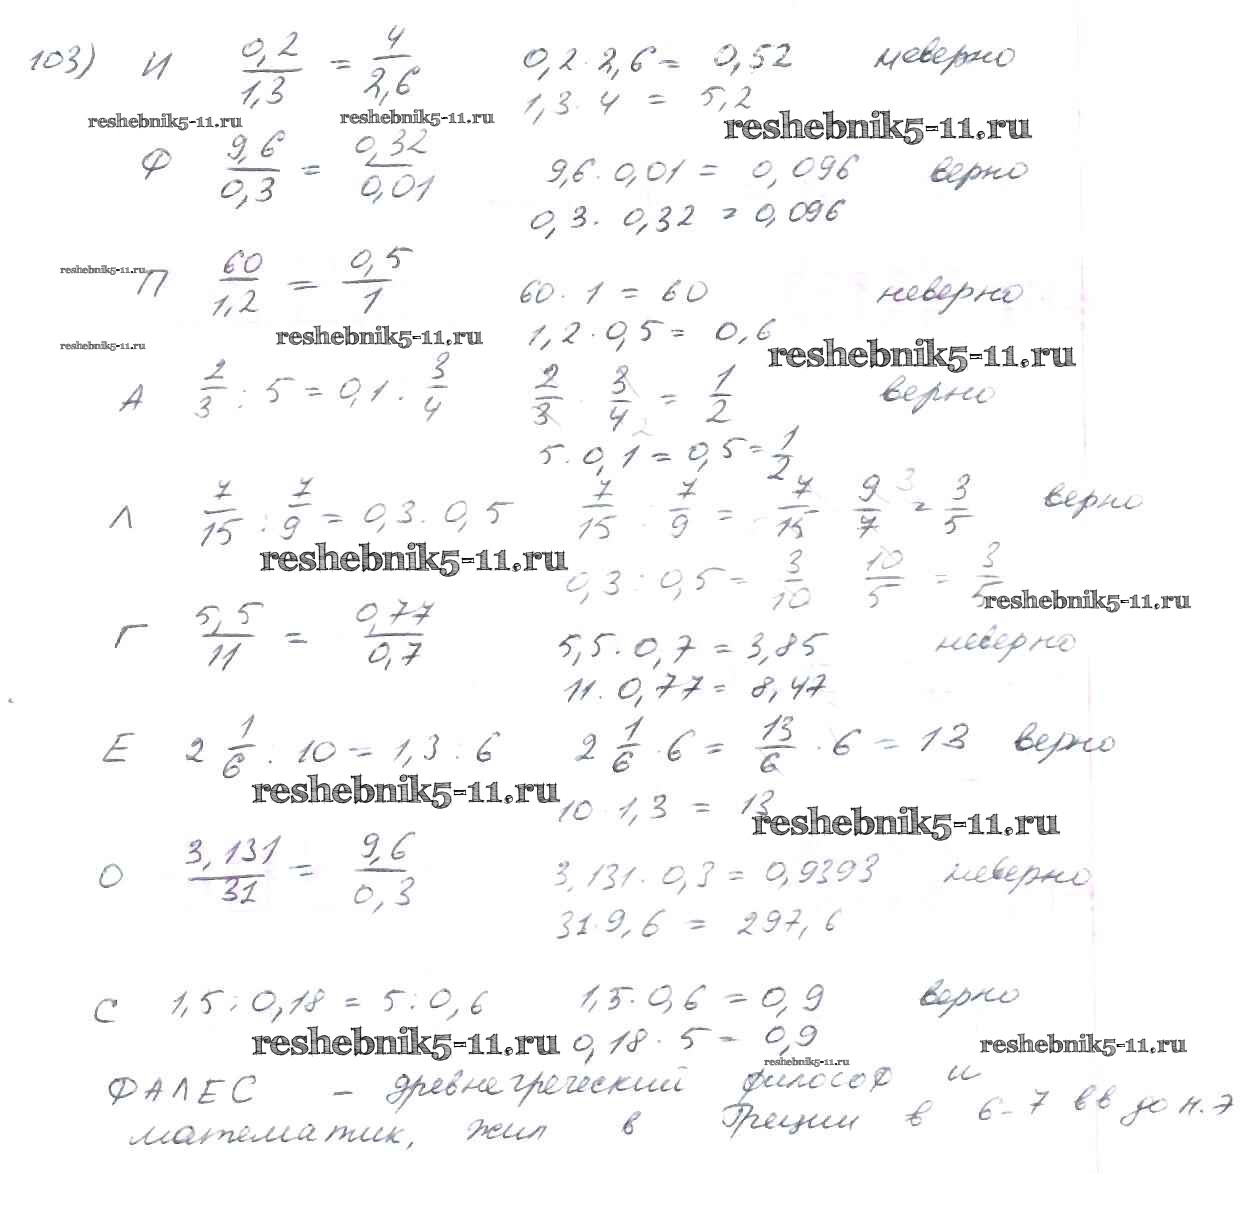 103) И 0,2/1,3 = 4/2,6 0,2 · 2,6 = 0,52 неверно
1,3 · 4 = 5,2
reshebnik5-11.ru reshebnik5-11.ru reshebnik5-11.ru
Ф 9,6/0,3 = 0,32/0,01 9,6 · 0,01 = 0,096 верно
0,3 · 0,32 = 0,096
reshebnik5-11.ru
П 60/1,2 = 0,5/1 60 · 1 = 60 неверно
1,2 · 0,5 = 0,6
reshebnik5-11.ru reshebnik5-11.ru reshebnik5-11.ru
А 2/3 : 5 = 0,1 · 3/4 2/3 · 3/4 = 1/2 верно
5 · 0,1 = 0,5 = 1/2
Л 7/15 : 7/9 = 0,3 · 0,5 7/15 : 7/9 = 7/15 · 9/7 = 3/5 верно
reshebnik5-11.ru
0,3 : 0,5 = 3/10 10/5 = 3/5
reshebnik5-11.ru
Г 5,5/11 = 0,77/0,7 5,5 · 0,7 = 3,85 неверно
11 · 0,77 = 8,47
Е 2 1/6 : 10 = 1,3 : 6 2 1/6 · 6 = 13/6 · 6 = 13 верно
reshebnik5-11.ru
10 · 1,3 = 13
reshebnik5-11.ru
О 3,131/31 = 9,6/0,3 3,131 · 0,3 = 0,9393 неверно
31 · 9,6 = 297,6
С 1,5 : 0,18 = 5 : 0,6 1,5 · 0,6 = 0,9 верно
reshebnik5-11.ru 0,18 · 5 = 0,9 reshebnik5-11.ru
reshebnik5-11.ru
ФАЛЕС – древнегреческий философ и
математик, жил в Греции в 6-7 вв до н.э